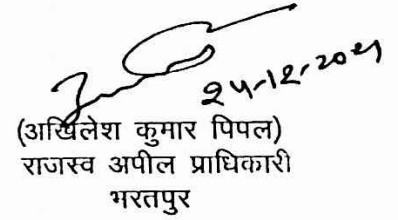 24-12-2021
(अखिलेश कुमार पिपल)
राजस्व अपील प्राधिकारी
भरतपुर